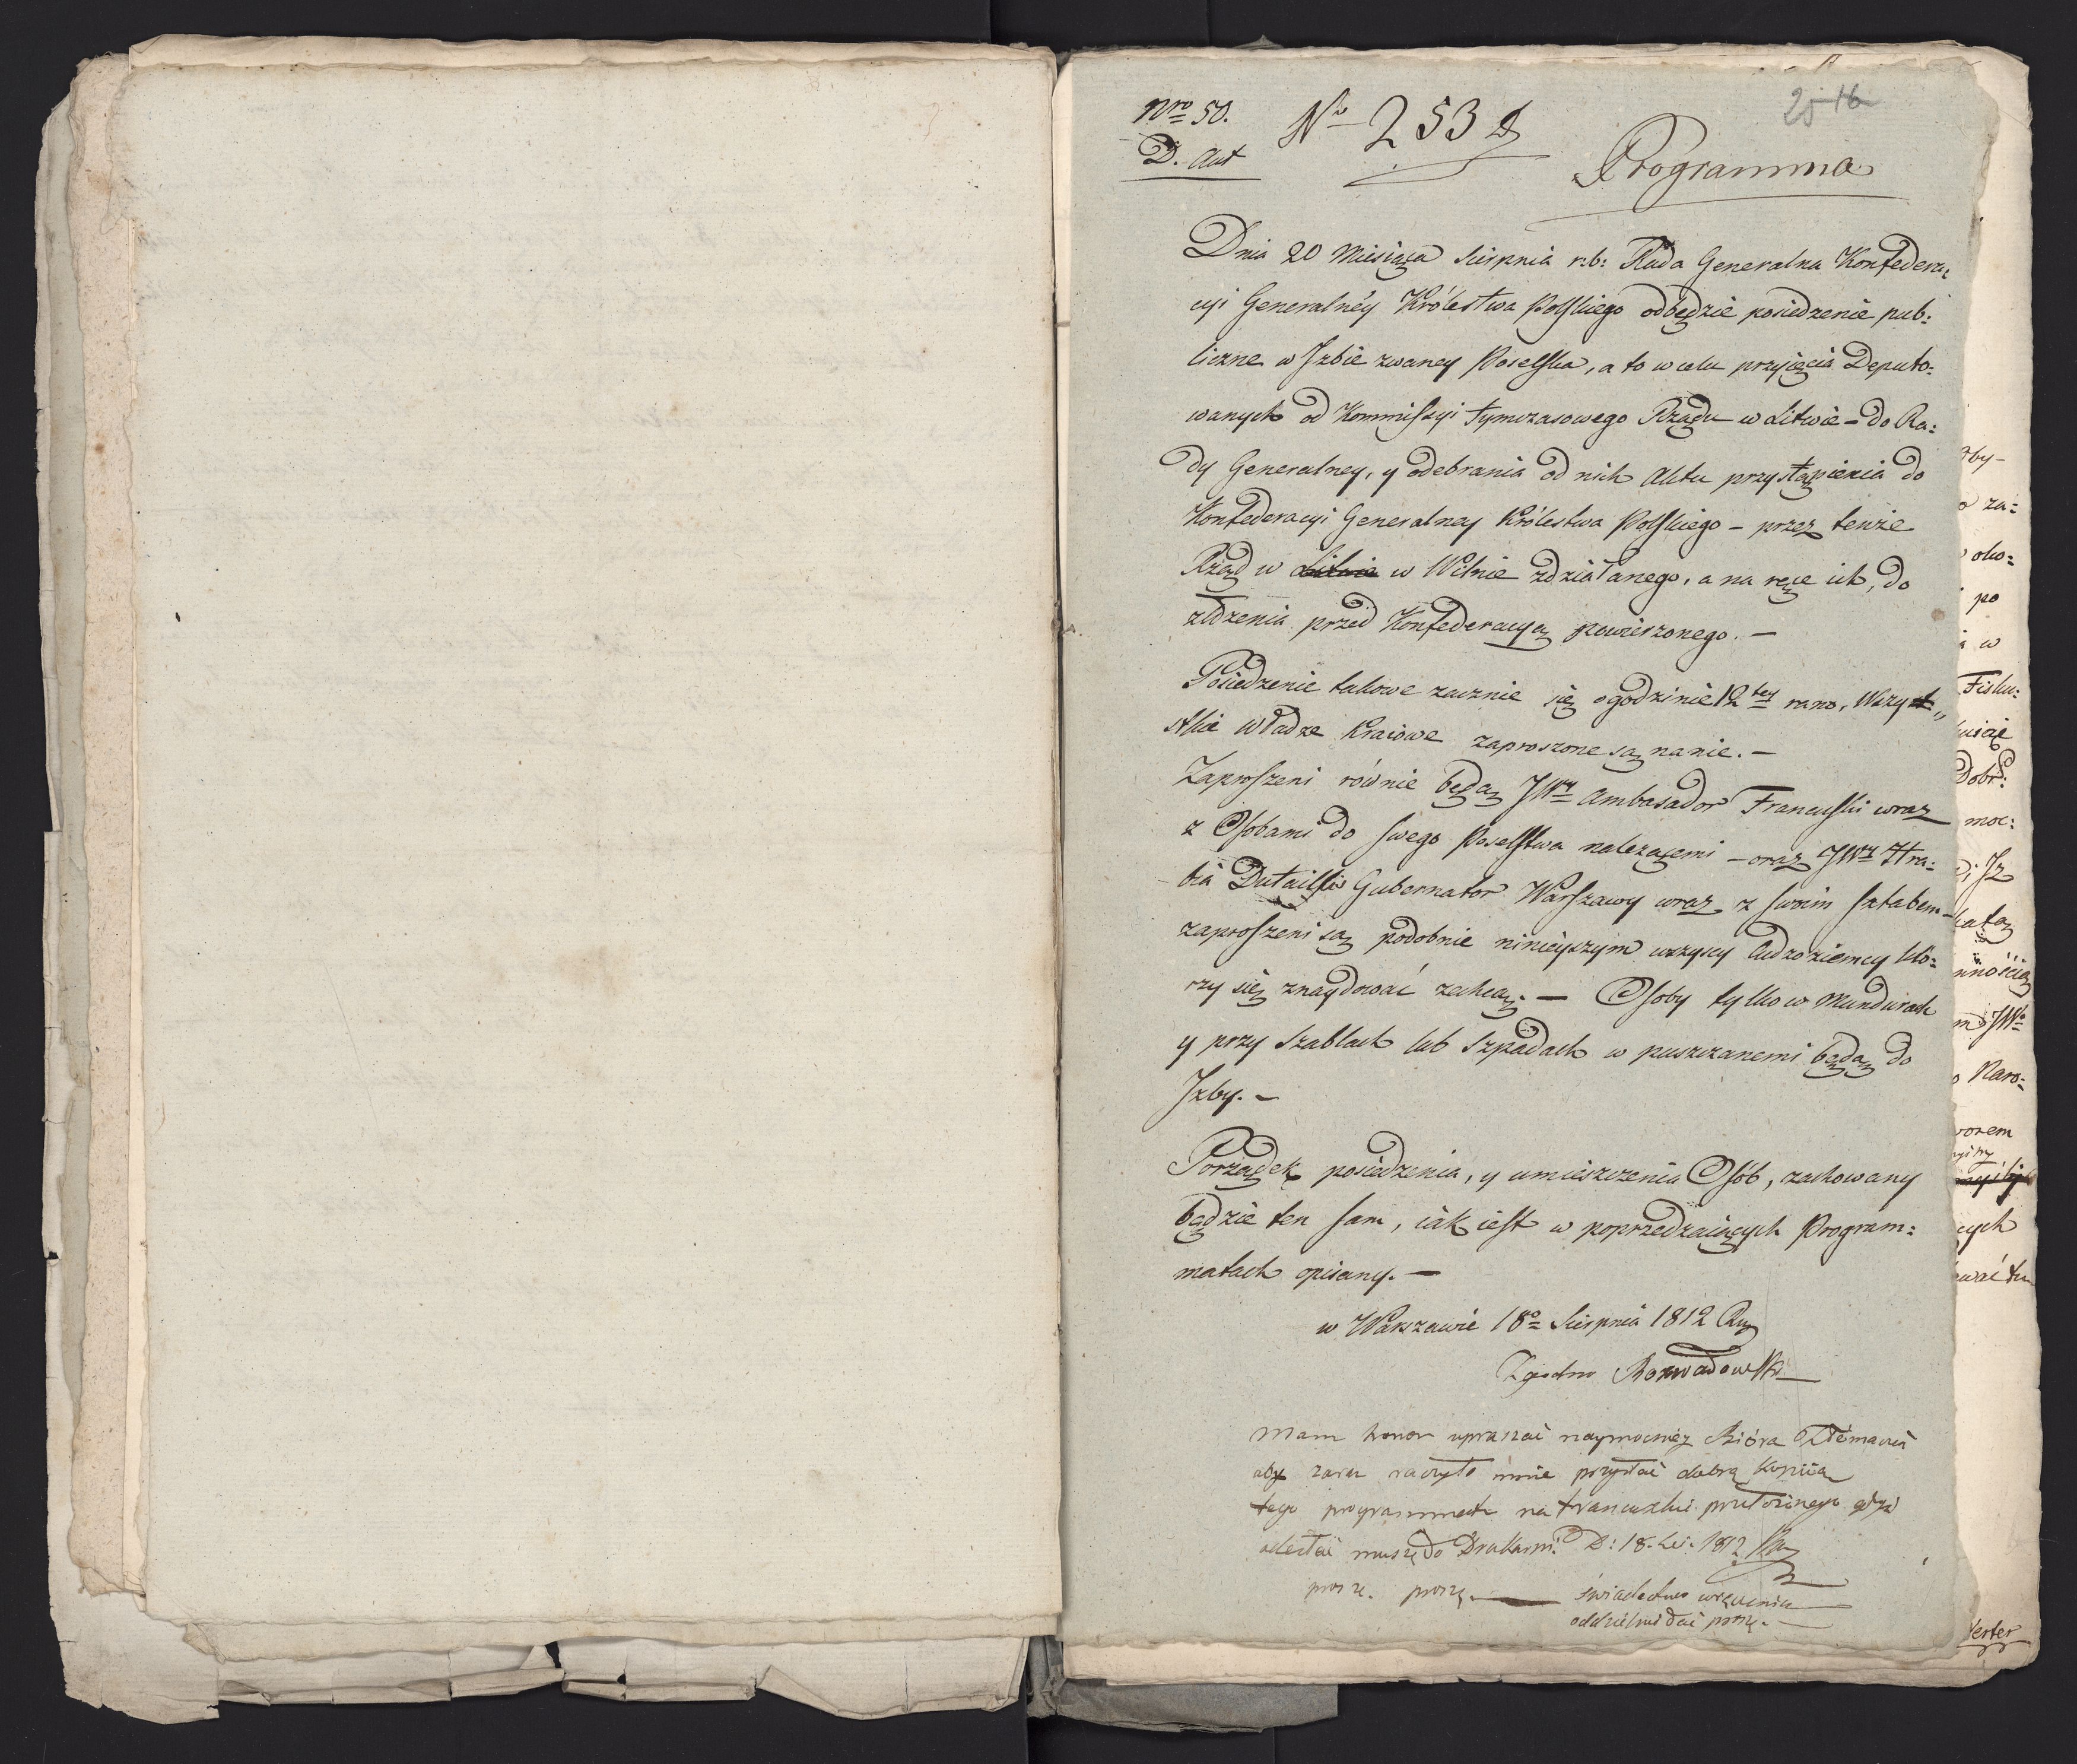 Nro 50.
D. Aut
No 253
25 16
Programma
Dnia 20 Miesiąca Sierpnia r.b: Rada Generalna Konfedera„
cyi Generalnéy Królestwa Polskiego odbędzie posiedzenie pub:
liczne w Jzbie zwaney Poselska, a to w celu przyięcia Deputo:
wanych od Kommissyi tymczasowego Rządu w Litwie – do Ra:
dy Generalney, y odebrania od nich Aktu przystąpienia do
Konfederacyi Generalney Królestwa Polskiego – przez tenże
Rząd w Litwie w Wilnie zdziałanego, a na ręce ich, do
złożenia przed Konfederacyą powierzonego. –
Posiedzenie takowe zacznie się o godzinie 12tey rano, Wszyst„
stkie Władze Kraiowe zaproszone są na nie. –
Zaproszeni równie będą JWny Ambasador Francuski wraz
z Osobami do swego Poselstwa należącemi – oraz JWny Hra:
bia Dutaillis Gubernator Warszawy wraz z swoim sztabem –
zaproszeni są podobnie ninieyszym wszyscy Cudzoziemcy któ:
rzy się znaydować zechcą. – Osoby tylko w Mundurach
y przy Szablach lub Szpadach w puszczanemi będą do
Jzby. –
Porządek posiedzenia, y umieszczenia Osób, zachowany
będzie ten sam, iak iest w poprzedzaiących Program:
matach opisany. –
w Warszawie 18go Sierpnia 1812 Ru
Zgodno Rozwadowski
Mam honor upraszać naymocniéy Bióra Tłómacza
aby zaraz raczyło mnie przysłać dobrą kopiią
tego programmatu na francuzki przełożonego gdyż
odesłać muszę do Drukarni. D: 18. 1812
proszę. proszę. — świadectwo wręczenia
oddzielnie dać proszę. –
zby –
o za:
oko:
po
w
Fisku:
Dobr:
moc:
Jz
nnością
JWo
Naro:
worem
ych